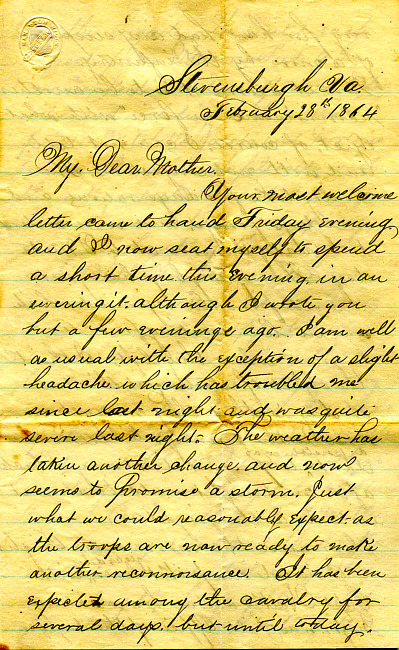 Stevensburgh Va.
February 28th 1864
My Dear Mother.
Your most welcome
letter came to hand Friday evening
and I now seat myself to spend
a short time this evening, in an
wering it. although I wrote you
but a few evenings ago. I am well
as usual with the exception of a slight
headache which has troubled me
since last night and was quite
severe last night. The weather has
taken another change and now
seems to promise a storm. Just
what we could reasonably expect. as
the troops are now ready to make
another reconnoisance. It has been
expected among the cavalry for
several days. but until today.